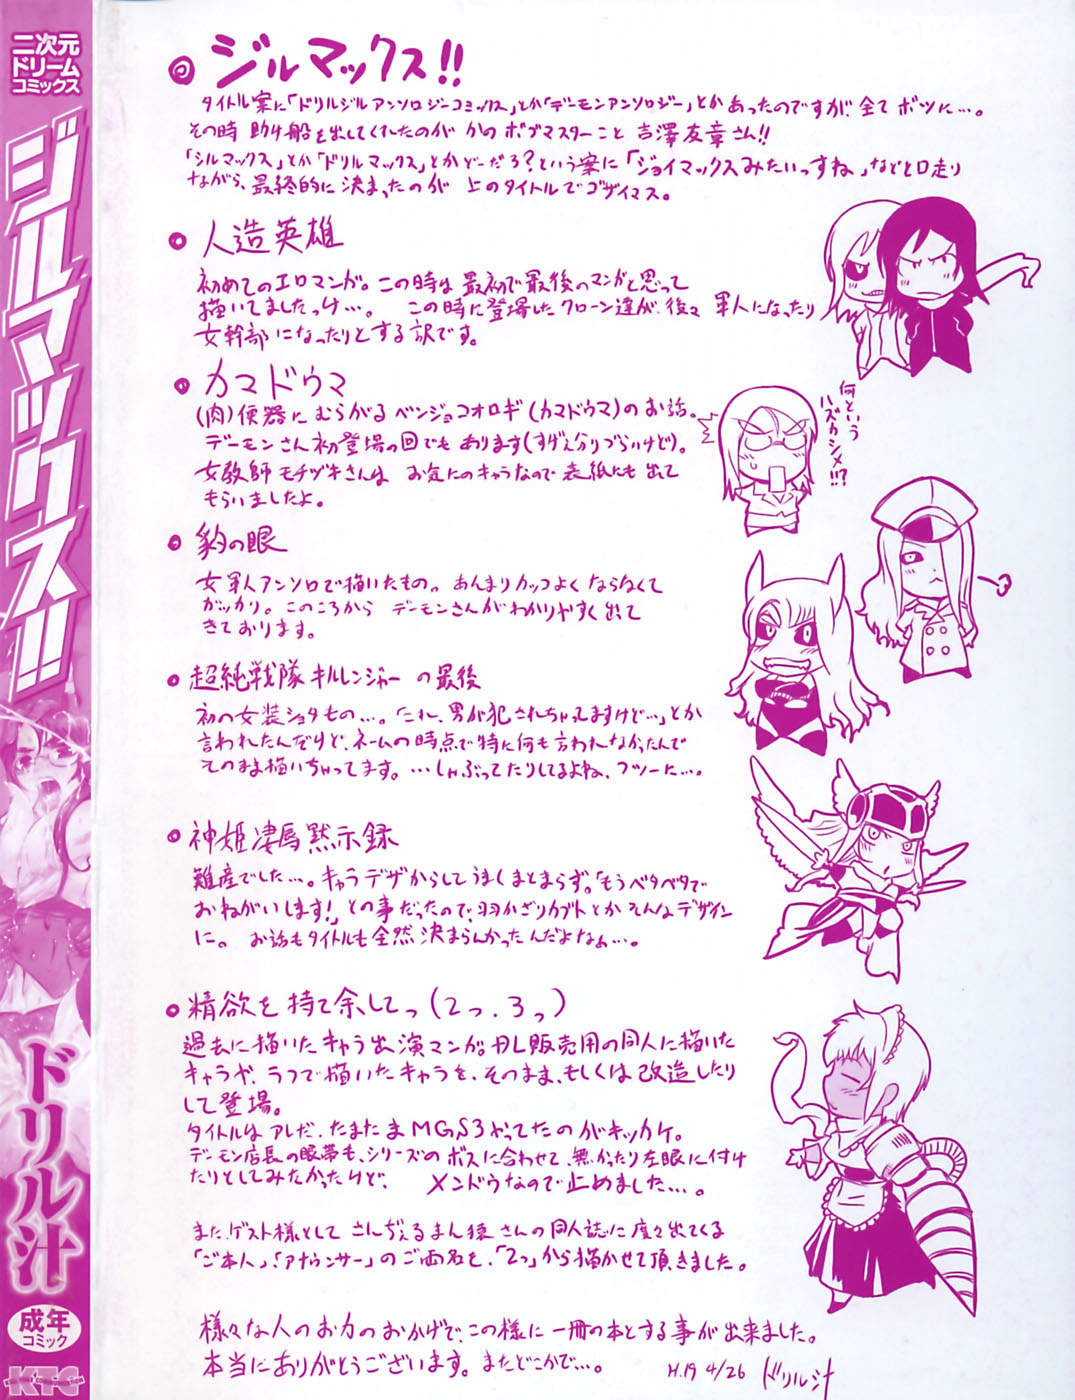 二次元
ドリーム
コミックス
ジルマックス!!
ドリル汁
成年
コミック
KTC
ジルマックス!!
タイトル案に「ドリルジルアンソロジーコミックス」とか「デーモンアンソロジー」とかあったのですが、全てボツに…。
その時助け船を出してくれたのがかのボブマスターこと吉澤友章さん!!
「シルマックス」とか「ドリルマックス」とかどーだろ?という案に「ジョイマックスみたいっすね」などと口走り
ながら、最終的に決まったのが上のタイトルでゴザイマス。
人造英雄
初めてのエロマンガ。この時は最初で最後のマンガと思って
描いてましたっけ…。この時に登場したクローン達が、後々軍人になったり
女幹部になったりとする訳です。
カマドウマ
(肉)便器にむらがるベンジョコオロギ(カマドウマ)のお話。
デーモンさん初登場の回でもあります(すげえ分りづらいけど)。
女教師モチヅキさんはお気にのキャラなので表紙にも出て
もらいましたよ。
何という
ハズカシメ!?
豹の眼
女軍人アンソロで描いたもの。あんまりカッコよくならなくて
ガッカリ。このころからデーモンさんがわかりやすく出て
きております。
超純戦隊キルレンジャーの最後
初の女装ショタもの…。「これ、男が犯されちゃってますけど…」とか
言われたんだけど、ネームの時点で特に何も言われなかったんで
そのまま描いちゃってます。…しゃぶってたりしてるよね、フツーに…。
神姫凄辱黙示録
難産でした…。キャラデザからしてうまくまとまらず。「もうベタベタで
おねがいします!」との事だったので、羽かざりカブトとかそんなデザイン
に。お話もタイトルも全然決まらんかったんだよなぁ…。
精欲を持て余してっ(2っ.3っ)
過去に描いたキャラ出演マンガ。DL販売用の同人に描いた
キャラや、ラフで描いたキャラを、そのまま、もしくは改造したり
して登場。
タイトルはアレだ、たまたまMGS3やってたのがキッカケ。
デーモン店長の眼帯も、シリーズのボスに合わせて、無かったり左眼に付け
たりとしてみたかったけど、メンドウなので止めました…。
また、ゲスト様としてさんぢぇるまん猿さんの同人誌に度々出てくる
「ご本人」、「アナウンサー」のご両名を、「2っ」から描かせて頂きました。
様々な人のお力のおかげで、この様に一冊の本とする事が出来ました。
本当にありがとうございます。またどこかで…。
H.19 4/26 ドリル汁